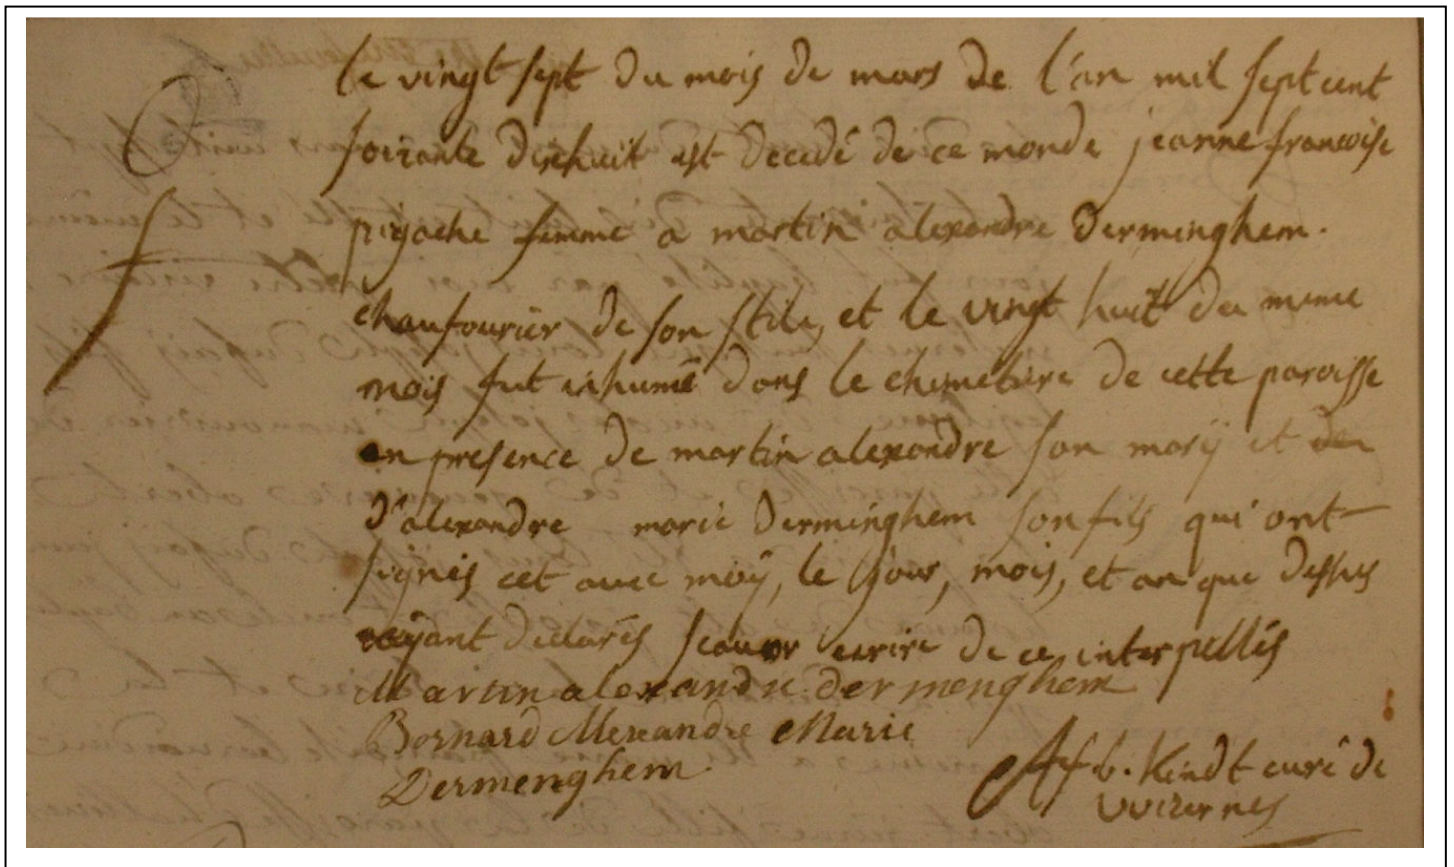 le vingt sept du mois de mars de l'an mil sept cent
soixante dixhuit est decedé de ce monde jeanne francoise
pigache femme a martin alexandre Derminghem.
chaufourier de son stile, et le vingt huit du meme
mois fut inhumé dans le chimetiere de cette paroisse
en presence de martin alexandre son marÿ et de
d'alexandre marie Derminghem son fils qui ont
signés cet avec moÿ, le jour, mois, et an que dessus
aÿant declarés scauoir ecrire de ce interpellés
Martin alexandre dermenghem
Bernard Alexandre Marie
Dermenghem.
b. Kindt curé de
wizernes